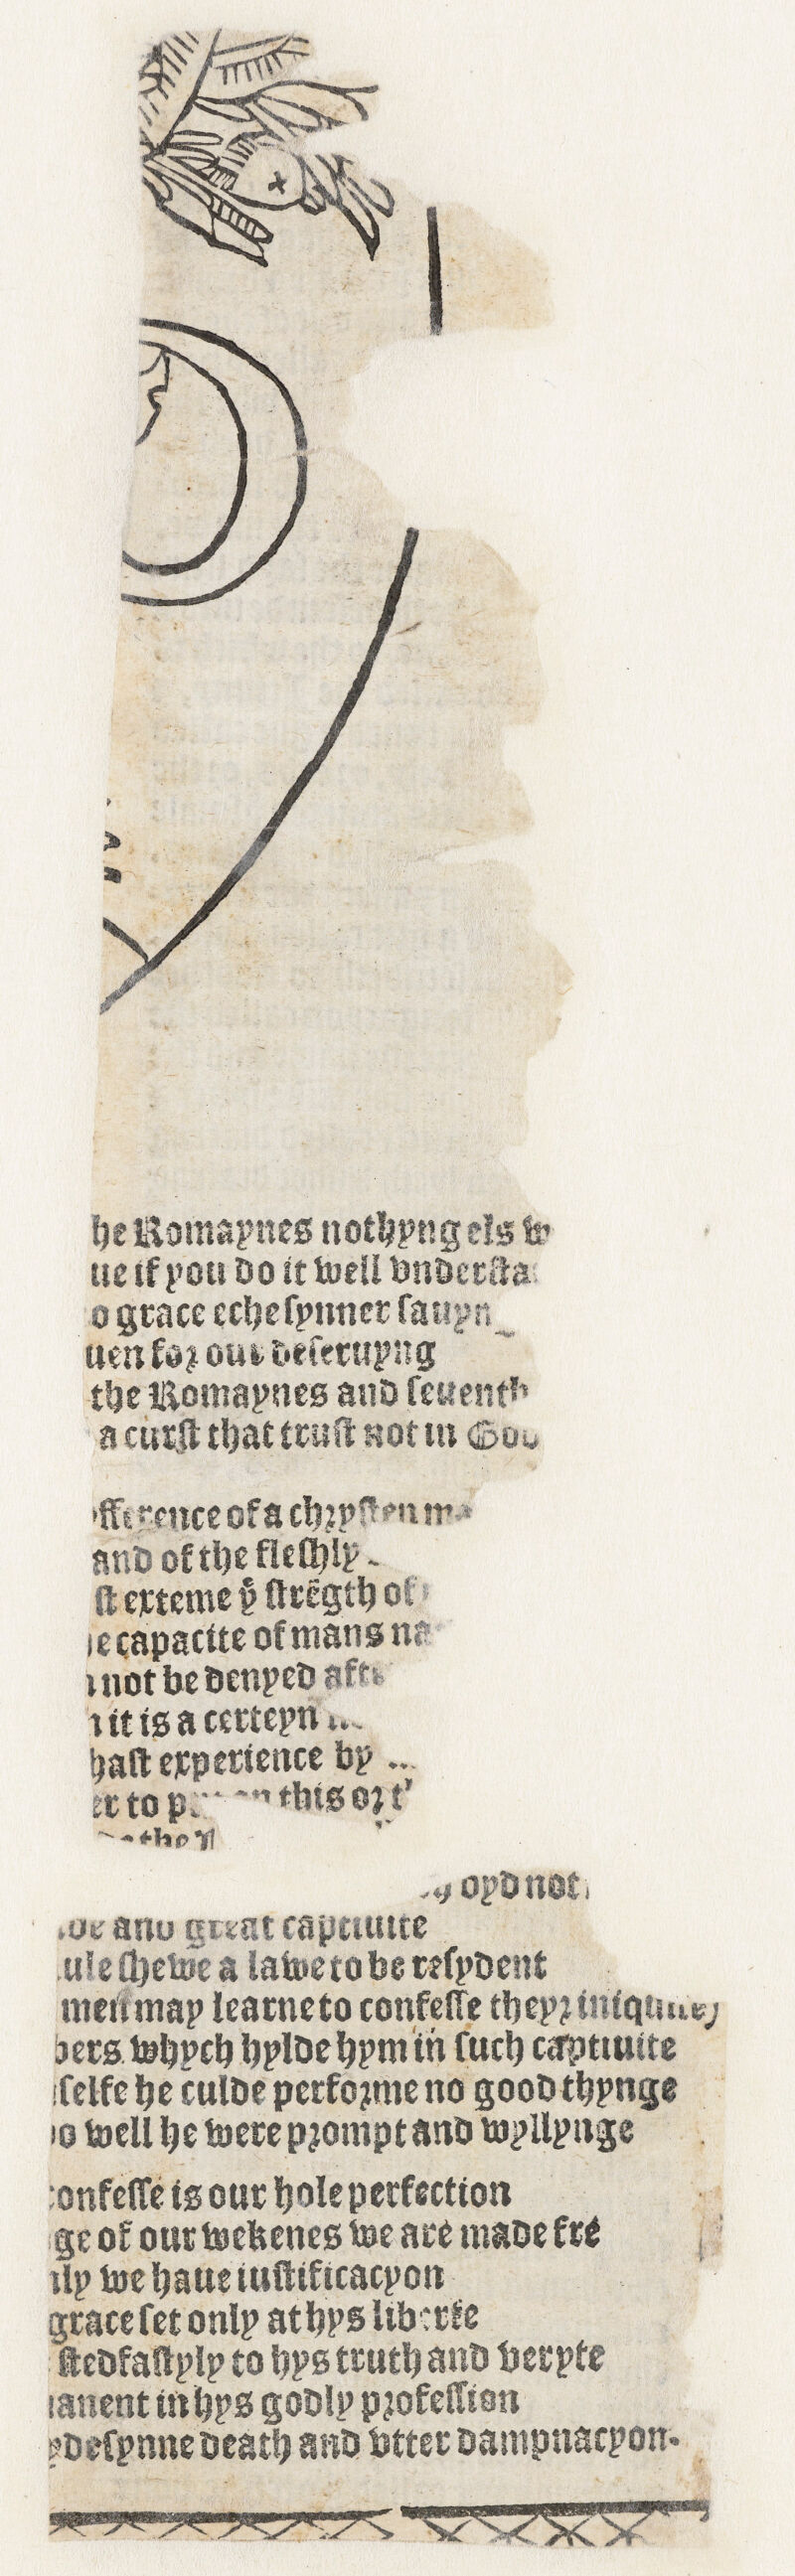 he Romaynes nothyng els w
ue if you do it well vnderſta
o grace eche ſynner ſauyn
uen foꝛ our deſeruyng
the Romaynes and ſeuenth
a curſt that truſt not in God
fference of a chꝛyſten ma
and of the fleſhly
ſt exteme ẏ ſtrẽgth of
e capacite of mans na
not be denyed afte
it is a certeyn
haſt experience by
er to this oꝛ t
the
oyd not
and great captiuite
ule ſhewe a lawe to be reſydent
men may learne to confeſſe theyꝛ iniquite
bers whych hylde hym in ſuch captiuite
ſelfe he culde perfoꝛme no good thynge
o well he were pꝛompt and wyllynge
confeſſe is our hole perfection
ge of our wekenes we are made fre
nly we haue iuſtificacyon
grace ſet only at hys liberte
ſtedfaſtyly to hys truth and veryte
anent in hys godly pꝛofeſſion
ydeſynne death and vtter dampnacyon.